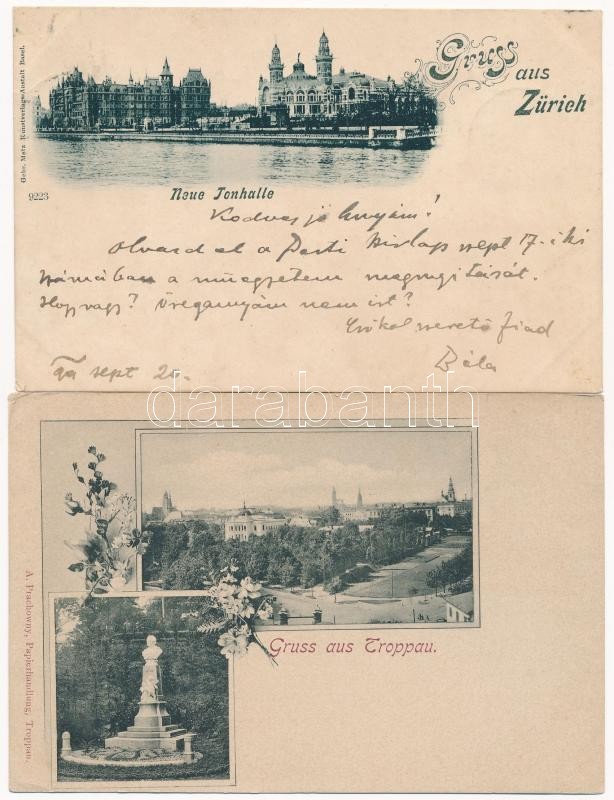 Gruss
aus
Zürich
Gebr. Metz Kunstverlags-Anstalt Basel.
9223
Neue Tonhalle
Kedves jó Anyám!
Olvasd el a Pesti Hirlap sept 17-i ki
számában a műegyetem megnyitását.
Hogy vagy? Öreganyám nem ir?
Csókol szerető fiad
Béla
sept 20.
darabanth
Gruss aus Troppau.
A. Prachowny, Papierhandlung, Troppau.